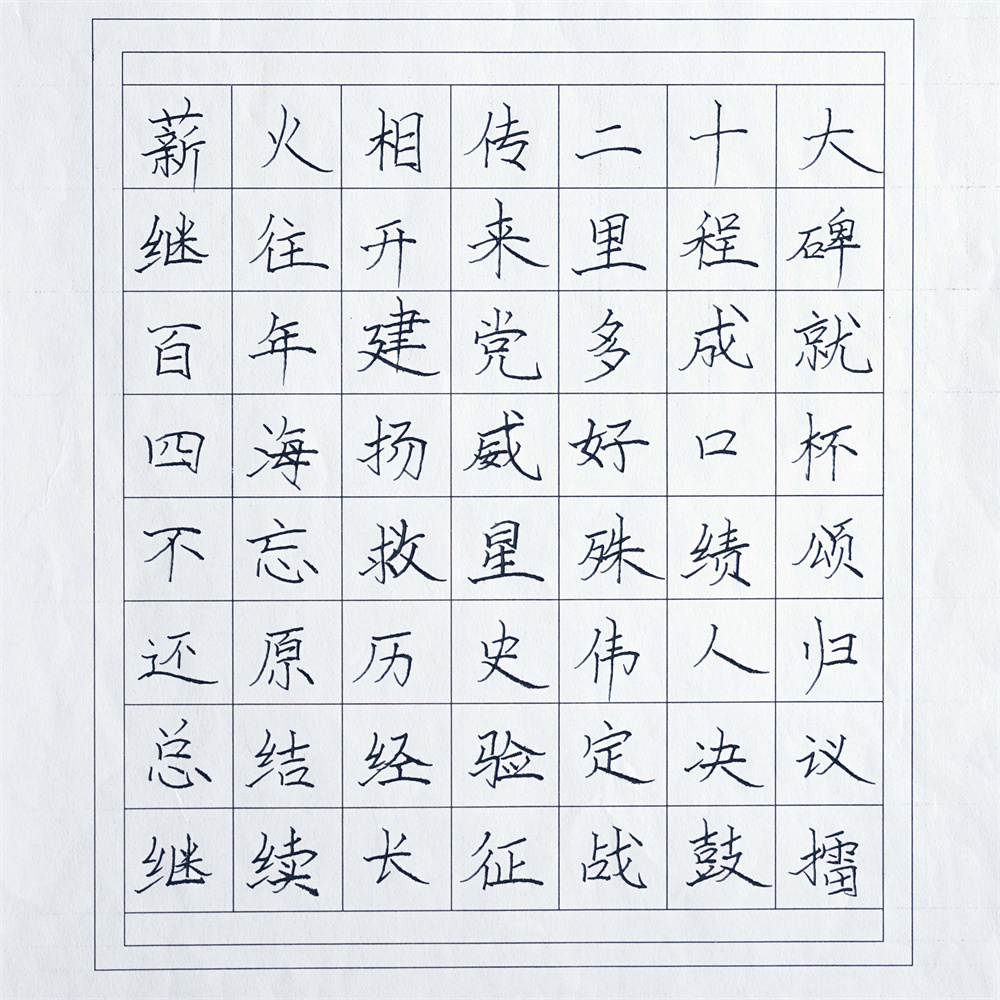 薪火相传二十大
继往开来里程碑
百年建党多成就
四海扬威好口杯
不忘救星殊绩颂
还原历史伟人归
总结经验定决议
继续长征战鼓擂